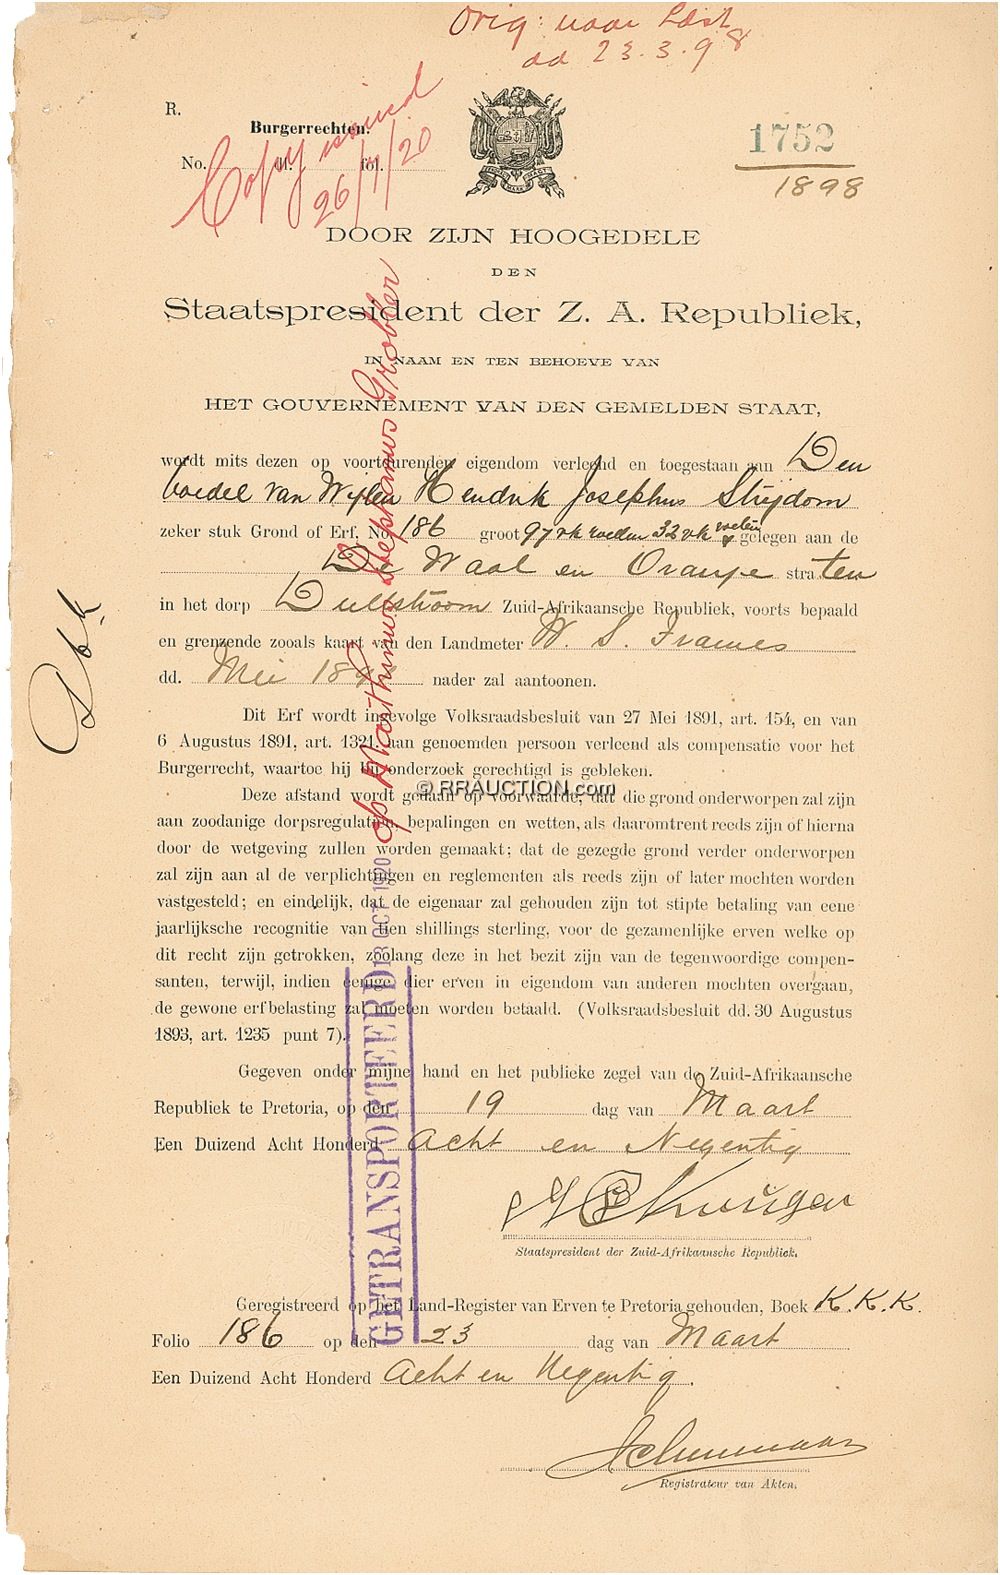 Orig: naar
dd 23.3.98
R.
Burgerrechten.
No. ul. fol.
Copy issued
26/1/20
1752
1898
DOOR ZIJN HOOGEDELE
DEN
Staatspresident der Z. A. Republiek,
IN NAAM EN TEN BEHOEVE VAN
HET GOUVERNEMENT VAN DEN GEMELDEN STAAT,
wordt mits dezen op voortdurenden eigendom verleend en toegestaan aan Den
boedel van Wylen Hendrik Josephus Strijdom
zeker stuk Grond of Erf, No. 186 groot 97 vk roeden 32 vk voeten gelegen aan de
De Waal en Oranje straten
in het dorp Dullstroom Zuid-Afrikaansche Republiek, voorts bepaald
en grenzende zooals kaart van den Landmeter W. S. Frames
dd. Mei nader zal aantoonen.
Dit Erf wordt ingevolge Volksraadsbesluit van 27 Mei 1891, art. 154, en van
6 Augustus 1891, art. 1321, aan genoemden persoon verleend als compensatie voor het
Burgerrecht, waartoe hij bij onderzoek gerechtigd is gebleken.
Deze afstand wordt gedaan op voorwaarde, dat die grond onderworpen zal zijn
aan zoodanige dorpsregulatiën, bepalingen en wetten, als daaromtrent reeds zijn of hierna
door de wetgeving zullen worden gemaakt; dat de gezegde grond verder onderworpen
zal zijn aan al de verplichtingen en reglementen als reeds zijn of later mochten worden
vastgesteld; en eindelijk, dat de eigenaar zal gehouden zijn tot stipte betaling van eene
jaarlijksche recognitie van tien shillings sterling, voor de gezamenlijke erven welke op
dit recht zijn getrokken, zoolang deze in het bezit zijn van de tegenwoordige compen-
santen, terwijl, indien eenige dier erven in eigendom van anderen mochten overgaan,
de gewone erfbelasting zal moeten worden betaald. (Volksraadsbesluit dd. 30 Augustus
1893, art. 1235 punt 7).
Gegeven onder mijne hand en het publieke zegel van de Zuid-Afrikaansche
Republiek te Pretoria, op den 19 dag van Maart
Een Duizend Acht Honderd Acht en Negentig
SJP Kruger
Staatspresident der Zuid-Afrikaansche Republiek.
Geregistreerd op het Land-Register van Erven te Pretoria gehouden, Boek K.K.K.
Folio 186 op den 23 dag van Maart
Een Duizend Acht Honderd Acht en Negentig.
Registrateur van Akten.
GETRANSPORTEERD 13 OCT 1920 op Marthinus Stephanus Grobler
© RRAUCTION.com